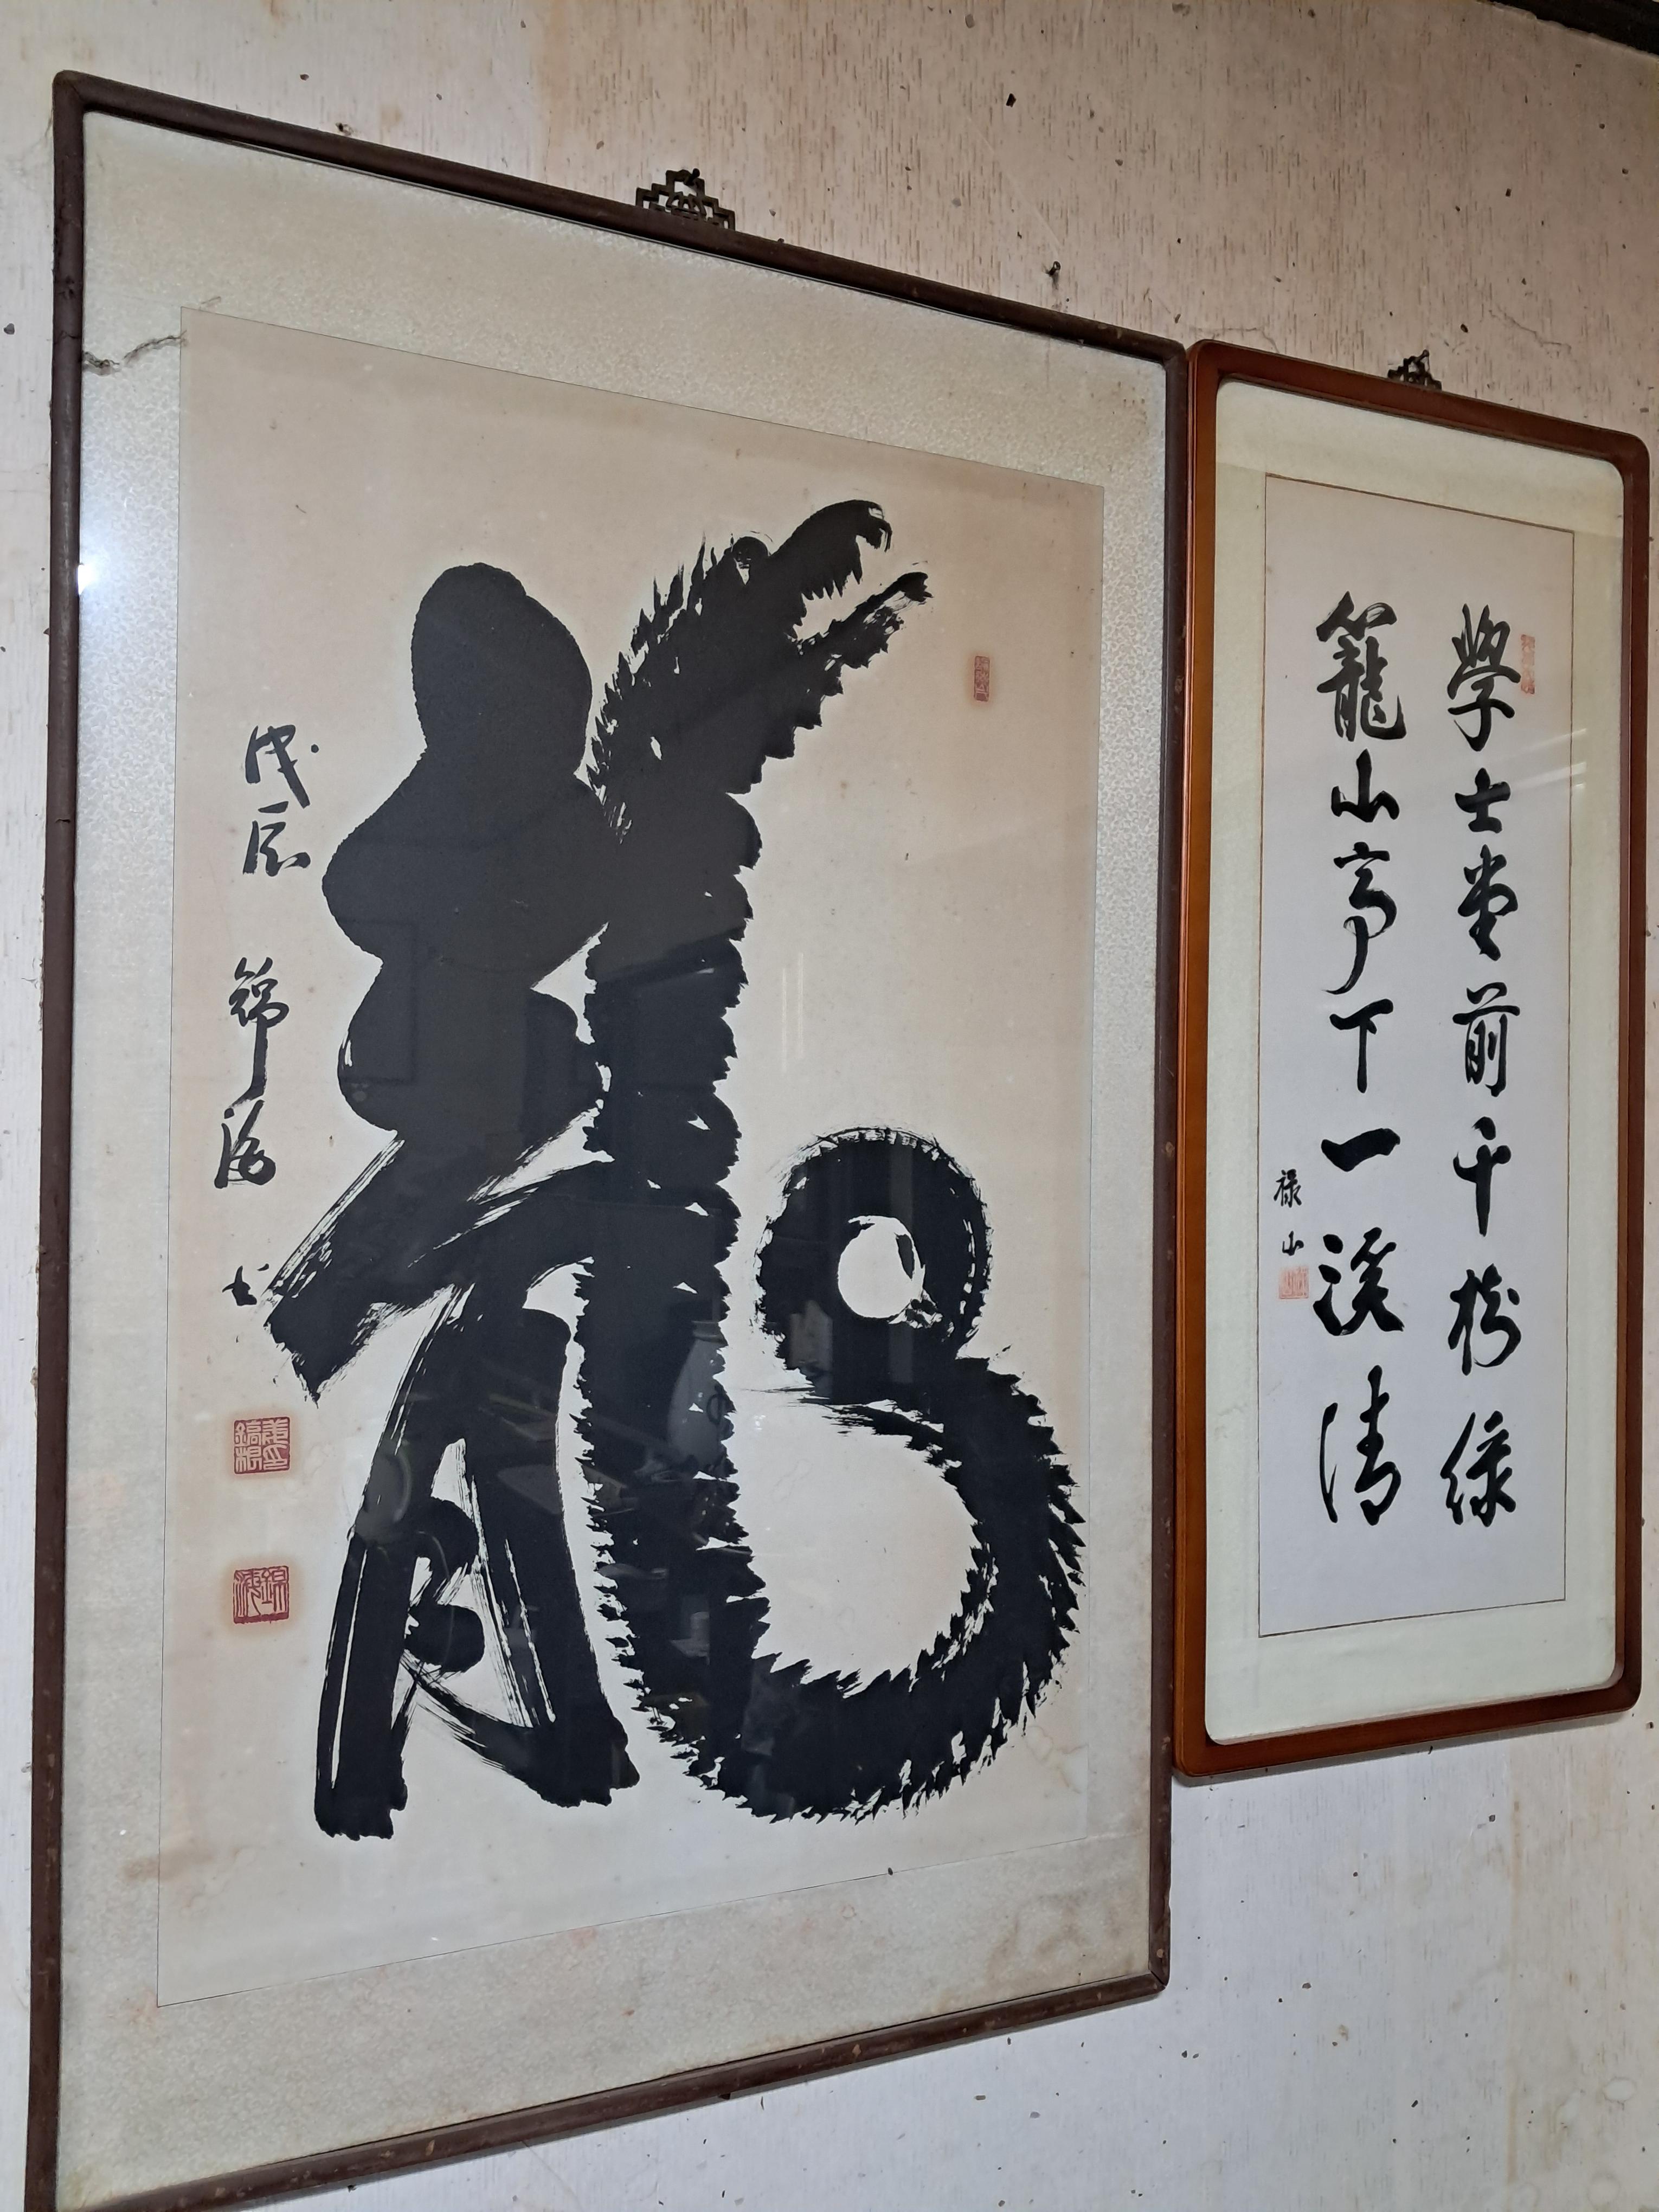 龍
戊辰 錦海 書
學士堂前千樹綠
籠山亭下一溪清
祿山